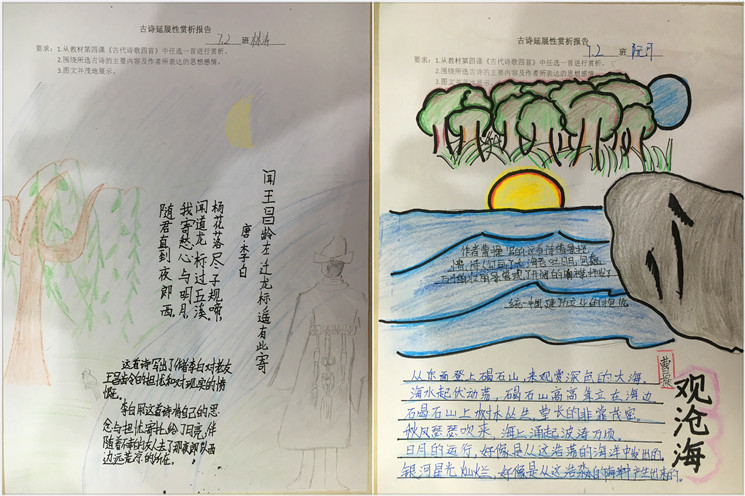 古诗延展性赏析报告
7.2 班
要求：1.从教材第四课《古代诗歌四首》中任选一首进行赏析。
2.围绕所选古诗的主要内容及作者所表达的思想感情。
3.图文并茂地展示。
闻王昌龄左迁龙标遥有此寄
唐 李白
杨花落尽子规啼
闻道龙标过五溪。
我寄愁心与明月，
随君直到夜郎西。
这首诗写出了作者李白对老友
王昌龄的担忧和对现实的愤
慨。
李白用这首诗将自己的思
念与担忧寄托给了月亮，伴
随着不幸的友人去了那夜郎以西
边远荒凉的所在。
古诗延展性赏析报告
7.2 班
要求：1.从教材第四课《古代诗歌四首》中任选一首进行赏析。
2.围绕所选古诗的主要内容及作者所表达的思想感情。
3.图文并茂地展示。
统一中国建功立业的抱负
曹操
观沧海
从东面登上碣石山，来观赏深色的大海。
海水起伏动荡，碣石山高高耸立在海边
石碣石山上树木丛生，草长的非常茂密。
秋风瑟瑟吹来，海上涌起波涛万顷。
日月的运行，好像是从这浩荡的海洋中发出的。
银河星光灿烂，好像是从这浩淼的海洋中产生出来的。